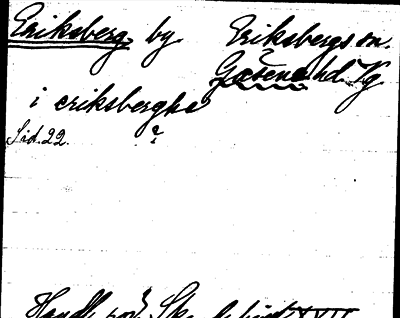 Eriksberg by Eriksbergs sn.
Gäsene hd. Vg
i eriksbergha
Sid. 22. ?
Handl. rör. Ska
XVII